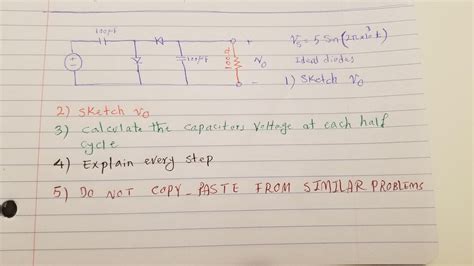 100µf
+
Vs = 5 Sin (2π x10³ t)
100µf
Vo
Ideal diodes
-
1) Sketch Vo
2) Sketch vo
3) calculate the capacitors voltage at each half
cycle
4) Explain every step
5) DO NOT COPY_PASTE FROM SIMILAR PROBLEMS